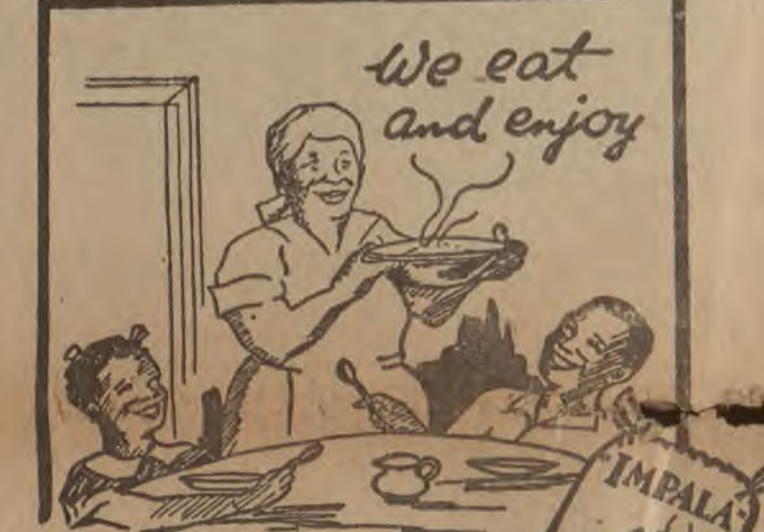 We eat
and enjoy
"IMPALA"